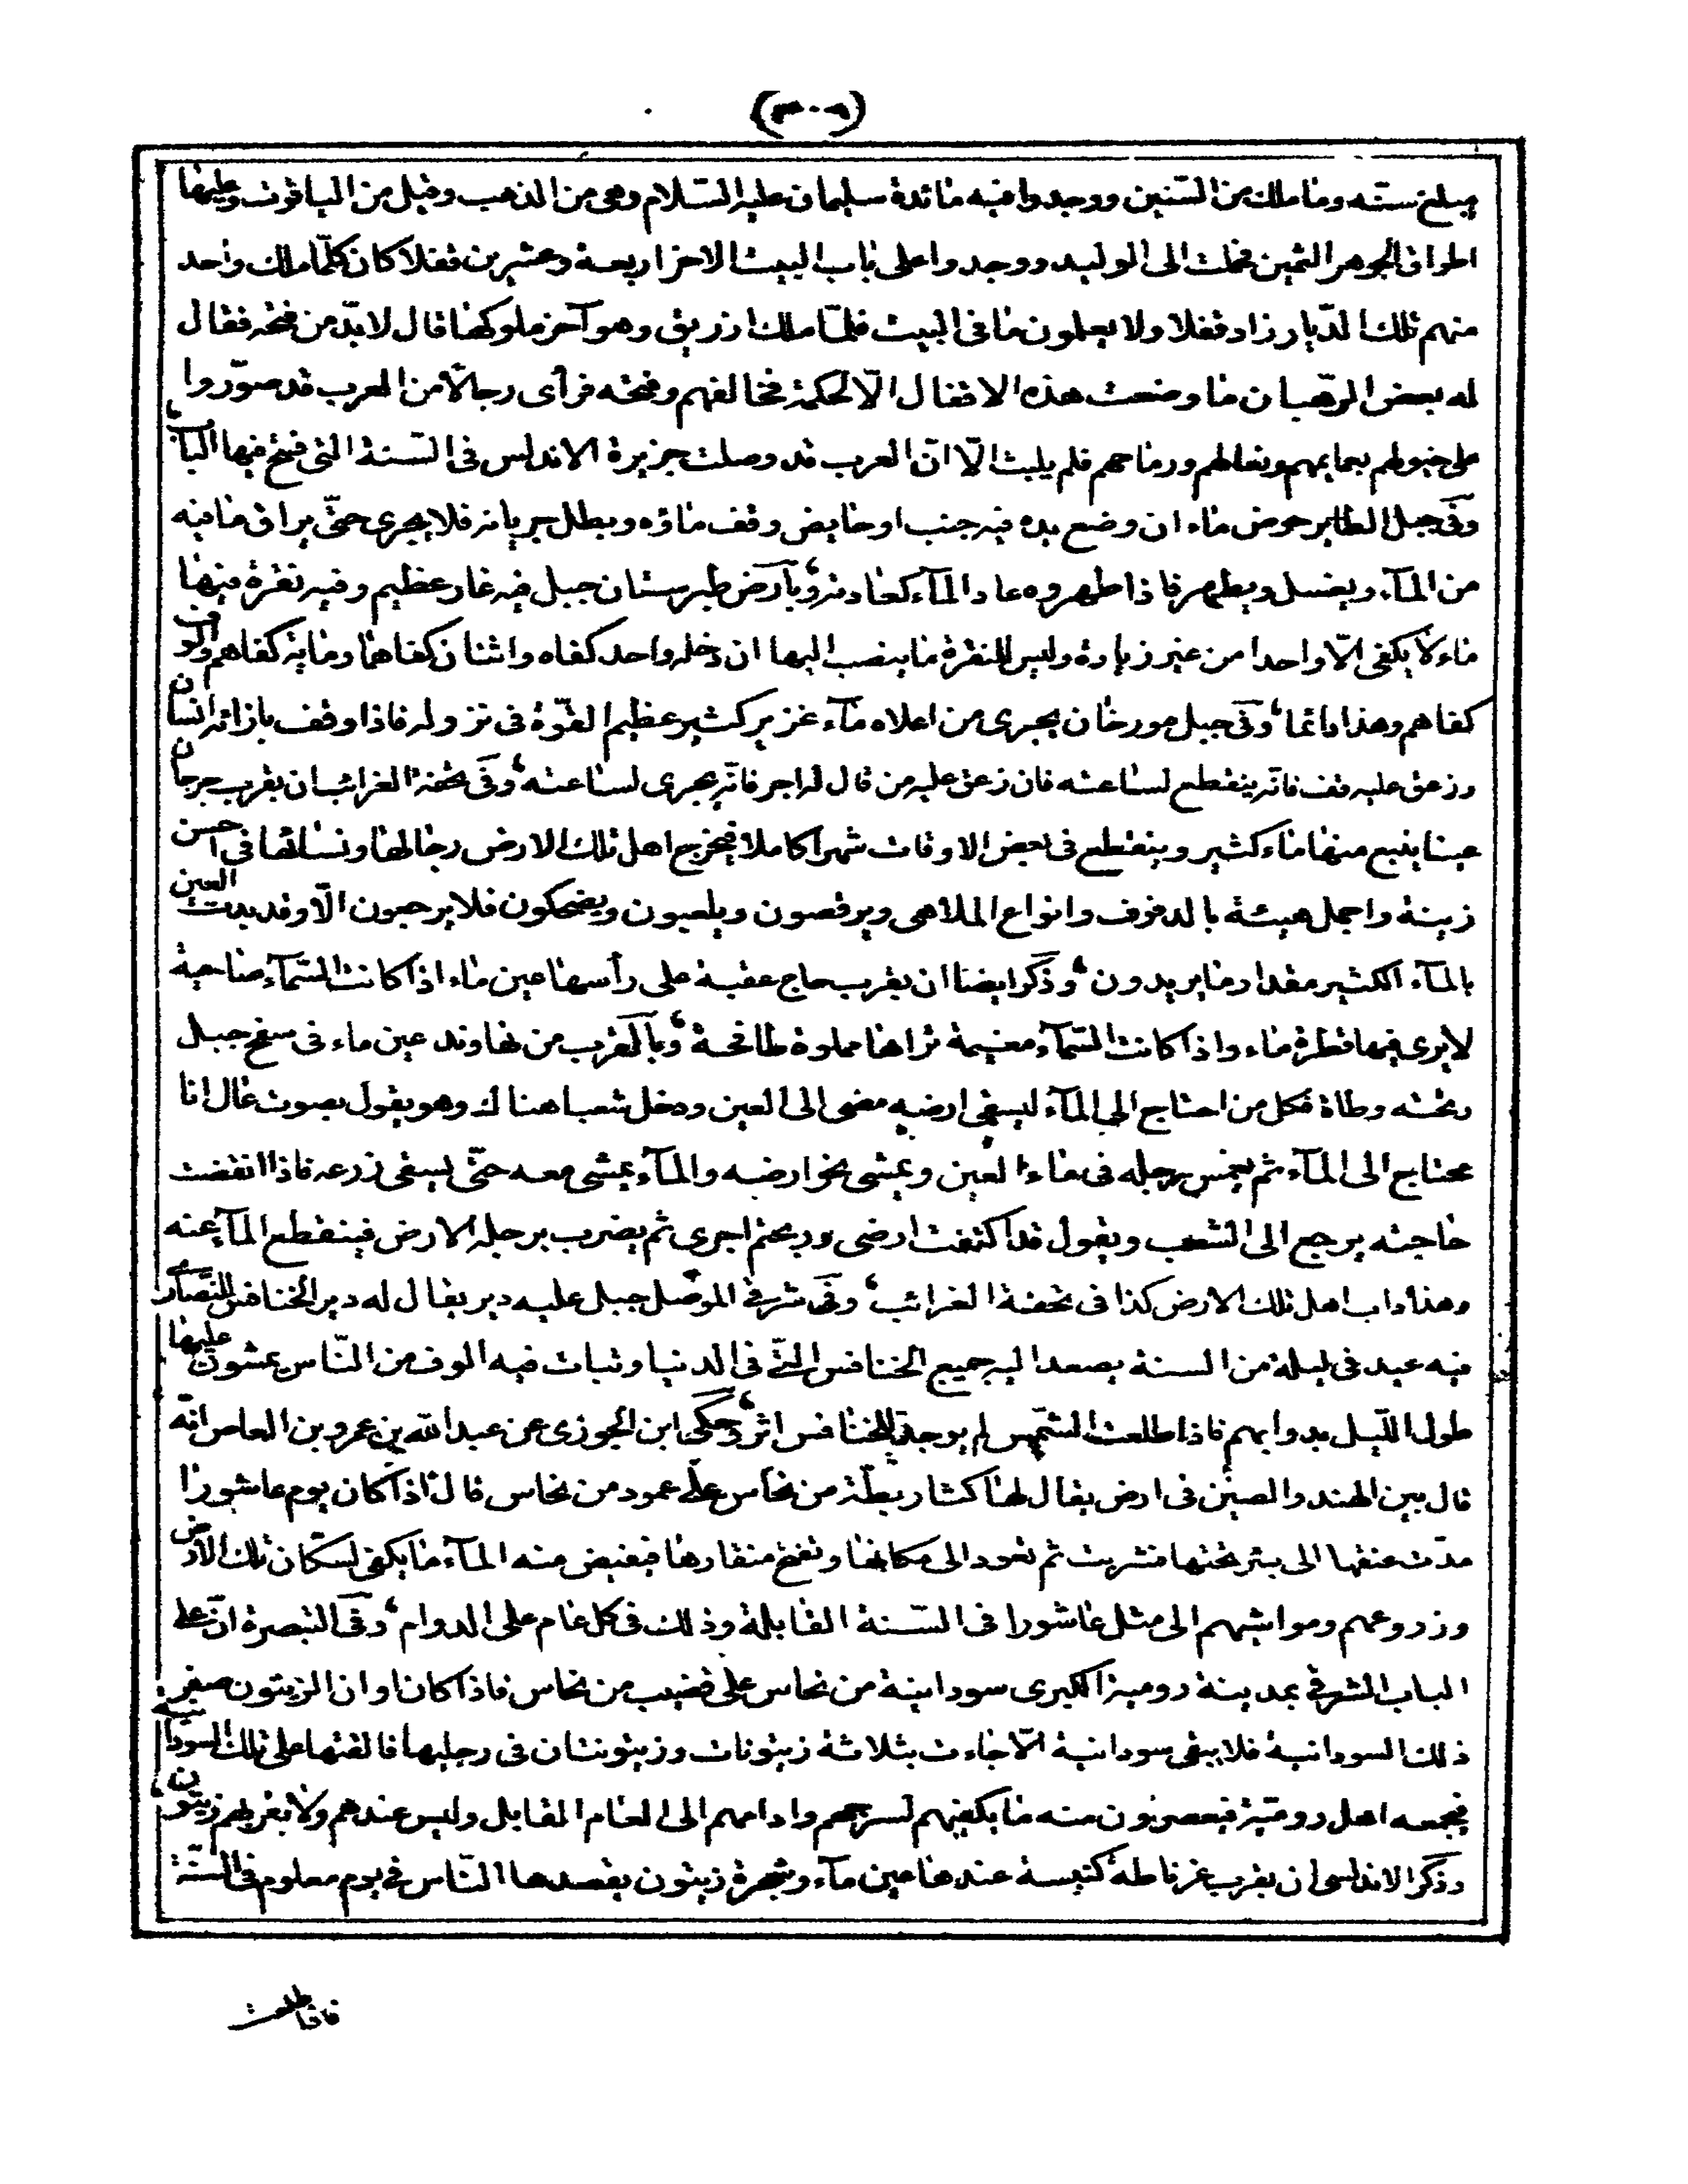 (٣٠٩)
مبلغ سنته وما ملك من السّنين ووجدوا فيه مائدة سليمان عليه السّلام وهى من الذهب وقيل من الياقوت وعليها
اطواق الجوهر الثمين فحملت الى الوليد ووجدوا على باب البيت الاخر اربعة وعشرين قفلا كان كلّما ملك واحد
منهم تلك الدّيار زاد قفلا ولا يعلمون ما فى البيت فلمّا ملك ارزريق وهو آخر ملوكها قال لابدّ من فتحه فقال
له بعض الرّهبان ما وضعت هذه الاقفال الّا لحكمة فخالفهم وفتحه فرآى رجالًا من العرب قد صوّروا
على خيولهم بعمايمهم ونعالهم ورماحهم فلم يلبث الّا انّ العرب قد وصلت جزيرة الاندلس فى السّنة التى فتح فيها الباب
وفى جبل الطاير حوض ماء ان وضع يده فيه جنب او حايض وقف ماؤه وبطل جريانه فلا يجرى حتّى يراق ما فيه
من المآء ويغسل ويطهر فاذا طهروه عاد المآء كعادته وبآرض طبرستان جبل فيه غار عظيم وفيه نقرة فيها
ماء لا يكفى الّا واحدا من غير زيادة وليس للنقرة ما ينصب اليها ان دخله واحد كفاه واثنان كفاهما ومائة كفاهم والوف
كفاهم وهذا دائما وفى جبل مورخان يجرى من اعلاه مآء غزير كثير عظيم القوّة فى نزوله فاذا وقف بازائه انسان
وزعق عليه قف فانّه ينقطع لساعته فان زعق عليه من قال له اجر فانّه يجرى لساعته وفى تحفة الغرائب ان بقرب جرجان
عينا ينبع منها ماء كثير وينقطع فى بعض الاوقات شهرا كاملا فيخرج اهل تلك الارض رجالها ونسائها فى احسن
زينة واجمل هيئة بالدفوف وانواع الملاهى ويرقصون ويلعبون ويضحكون فلا يرجعون الّا وقد بدت العين
بالمآء الكثير مقدار ما يريدون وذكر ايضا ان بقرب حاج عقبة على رأسها عين ماء اذا كانت السّمآء صاحية
لا يرى فيها قطرة ماء واذا كانت السّمآء مغيمة تراها مملوة طافحة وبالقرب من نهاوند عين ماء فى سفح جبل
وتحته وطاة فكل من احتاج الى المآء ليسقى ارضه مضى الى العين ودخل شعبا هناك وهو يقول بصوت عال انا
محتاج الى المآء ثم يغمس رجله فى ماء العين ويمشى نحو ارضه والمآء يمشى معه حتّى يسقى زرعه فاذا انقضت
حاجته يرجع الى الشعب ويقول قد اكتفت ارضى ورحتم اجرى ثم يضرب برجله الارض فينقطع المآء عنه
وهذا داب اهل تلك الارض كذا فى تحفة الغرائب وفى شرقى الموصل جبل عليه دير يقال له دير الخنافس للنصارى
فيه عيد فى ليلة من السنة يصعد اليه جميع الخنافس الّتى فى الدنيا وتبات فيه الوف من النّاس يمشون عليها
طول اللّيل بدوابهم فاذا طلعت الشّمس لم يوجد للخنافس اثر وحكى ابن الجوزى عن عبد اللّه بن عمرو بن العاص انّه
قال بين الهند والصين فى ارض يقال لها كثار بطّة من نحاس على عمود من نحاس قال اذا كان يوم عاشورا
مدّت عنقها الى بئر تحتها فشربت ثم تعود الى مكانها وتفتح منقارها فيفيض منه المآء ما يكفى لسكّان تلك الارض
وزروعهم ومواشيهم الى مثل عاشورا فى السّنة القابلة وذلك فى كل عام على الدوام وفى التبصرة انّ على
الباب الشرقى بمدينة رومية الكبرى سودانية من نحاس على قضيب من نحاس فاذا كان اوان الزيتون صفر
ذلك السودانية فلا يبقى سودانية الّا جاءت بثلاثة زيتونات وزيتونتان فى رجليها فالقتها على تلك السودانية
فيجمعه اهل روميّة فيعصرون منه ما يكفيهم لسرجهم وادامهم الى العام المقابل وليس عندهم ولا بقربهم زيتون
وذكر الاندلسى ان بقرب غرناطة كنيسة عندها عين مآء وشجرة زيتون يقصدها النّاس فى يوم معلوم فى السّنة
فاذا طلعت